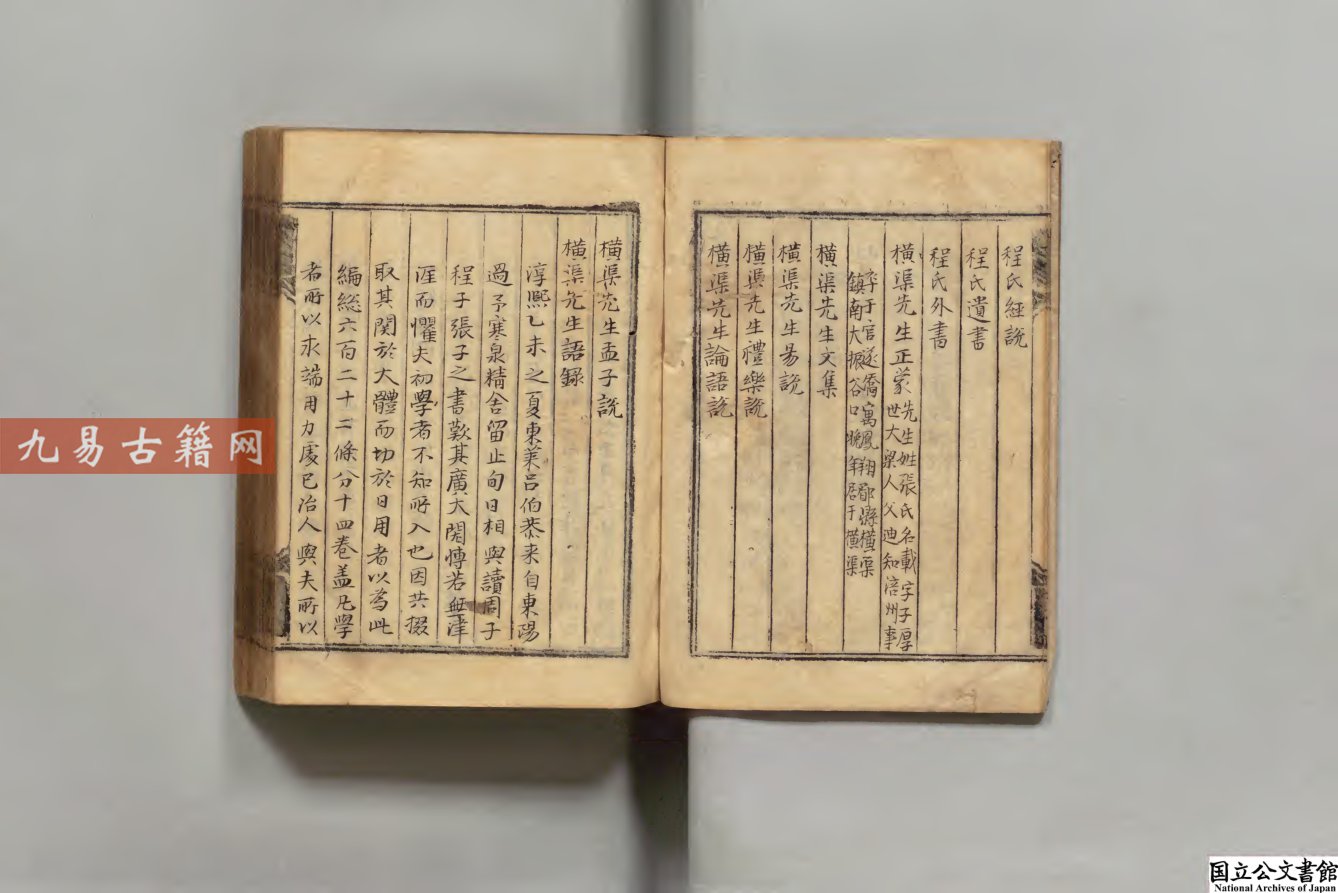 程氏經說
程氏遺書
程氏外書
橫渠先生正蒙
先生姓張氏名載字子厚
世大梁人父迪知涪州事
卒于官遂僑寓鳳翔郿縣橫渠
鎮南大振谷口晚年居于橫渠
橫渠先生文集
橫渠先生易說
橫渠先生禮樂說
橫渠先生論語說
橫渠先生孟子說
橫渠先生語錄
淳熙乙未之夏東萊呂伯恭来自東陽
過予寒泉精舍留止旬日相與讀周子
程子張子之書歎其廣大閎博若無津
涯而懼夫初學者不知所入也因共掇
取其関於大體而切於日用者以為此
編総六百二十二條分十四卷盖凡學
者所以求端用力處已治人與夫所以
九易古籍网
国立公文書館
National Archives of Japan